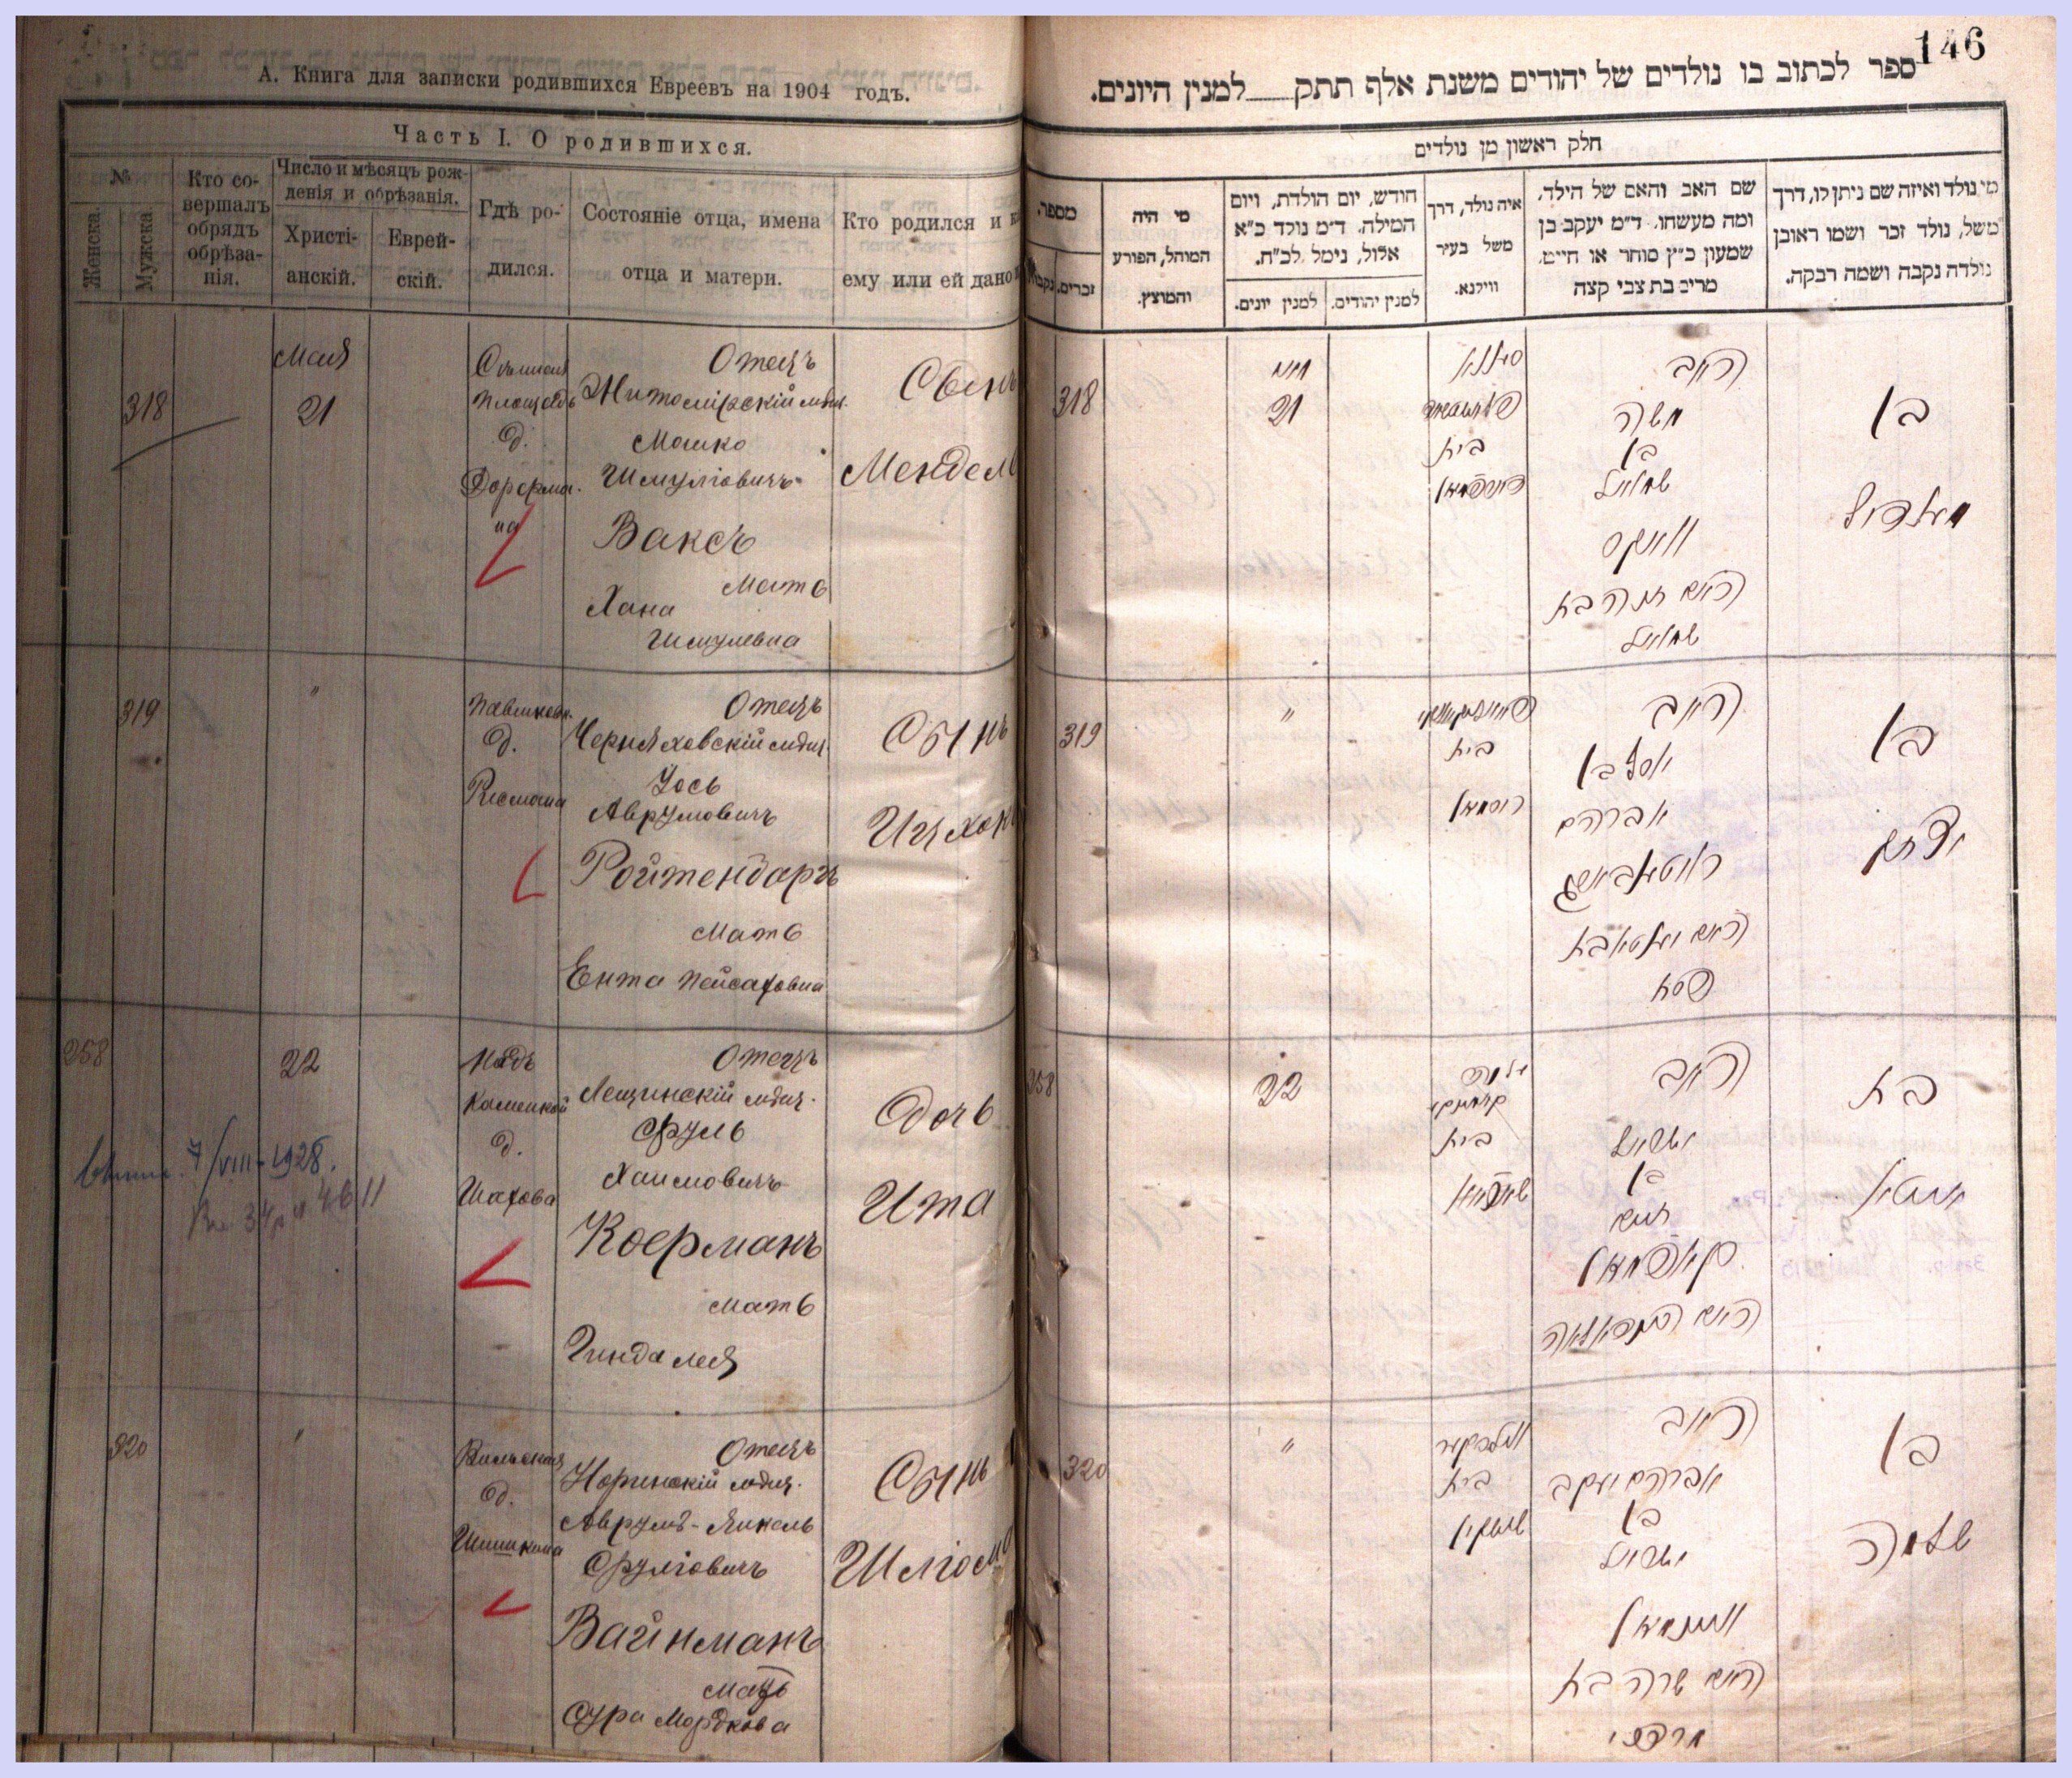 А. Книга для записки родившихся Евреевъ на 1904 годъ.
Часть I. О родившихся.
№
Женска.
Мужска.
Кто со-
вершалъ
обрядъ
обрѣза-
нія.
Число и мѣсяцъ рож-
денія и обрѣзанія.
Христі-
анскій.
Еврей-
скій.
Гдѣ ро-
дился.
Состояніе отца, имена
отца и матери.
Кто родился и
ему или ей дано
318
Мая
21
площадь
д.
Отецъ
Житомірскій мѣщ.
Мошко
Шмуліовичъ
Ваксъ
Мать
Хана
Шмулевна
Сынъ
Мендель
319
"
д.
Отецъ
Черняховскій мѣщ.
Іось
Аврумовичъ
Ройтенбаргъ
Мать
Ента Пейсаховна
Сынъ
Ицхокъ
258
22
Надъ
Каменкой
д.
Шахова
Отецъ
Лещинскій мѣщ.
Сруль
Хаимовичъ
Коерманъ
Мать
Гинда Лея
Дочь
Ита
7/VIII-1928.
320
Вильская
д.
Шишкина
Отецъ
Норинскій мѣщ.
Аврумъ-Янкель
Сруліовичъ
Вайнманъ
Мать
Сура Мордкова
Сынъ
Шліома
146
ספר לכתוב בו נולדים של יהודים משנת אלף תתק למנין היונים.
חלק ראשון מן נולדים
מי נולד ואיזה שם ניתן לו, דרך
משל, נולד זכר ושמו ראובן
נולדה נקבה ושמה רבקה.
שם האב והאם של הילד,
ומה מעשהו. ד״מ יעקב בן
שמעון כ״ץ סוחר או חייט,
מרים בת צבי קצה
איה נולד, דרך
משל בעיר
ווילנא.
חודש, יום הולדת, ויום
המילה. ד״מ נולד כ״א
אלול, נימל לכ״ח.
למנין יהודים.
למנין יונים.
מי היה
המוהל, הפורע
והמוצץ.
מספר.
זכרים.
נקבות
318
מאי
21
בית
האב
משה
בן
שמואל
וואקס
האם חנה בת
שמואל
בן
מענדיל
319
"
בית
האב
יוסף בן
אברהם
האם יענטא בת
פסח
בן
יצחק
258
22
בית
האב
ישראל
בן
חיים
בת
איטא
320
"
בית
האב
אברהם יעקב
בן
ישראל
וויינמאן
האם שרה בת
מרדכי
בן
שלמה